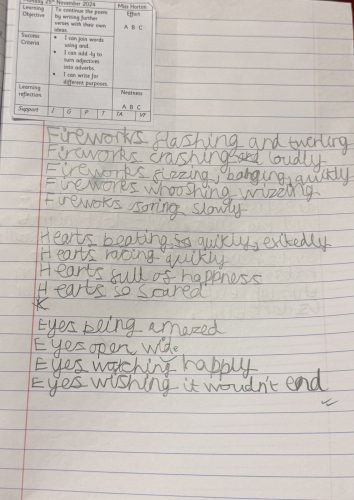 Monday 25th November 2024
Miss Horton
Learning Objective
To continue the poem by writing further verses with their own ideas.
Effort
A B C
Success Criteria
• I can join words using and.
• I can add -ly to turn adjectives into adverbs.
• I can write for different purposes.
Learning reflection
Neatness
A B C
Support I G P T TA VF
Fireworks flashing and twerling
Fireworks crashing loudly
Fireworks fizzing, banging, quikly
Fireworks whooshing wizzing
Firewoks soring slowly
Hearts beating, so quikly, exitedly
Hearts racing quikly
Hearts full of happness
Hearts so scared
Eyes being amazed
Eyes open wide
Eyes watching happly
Eyes wishing it woudn't end